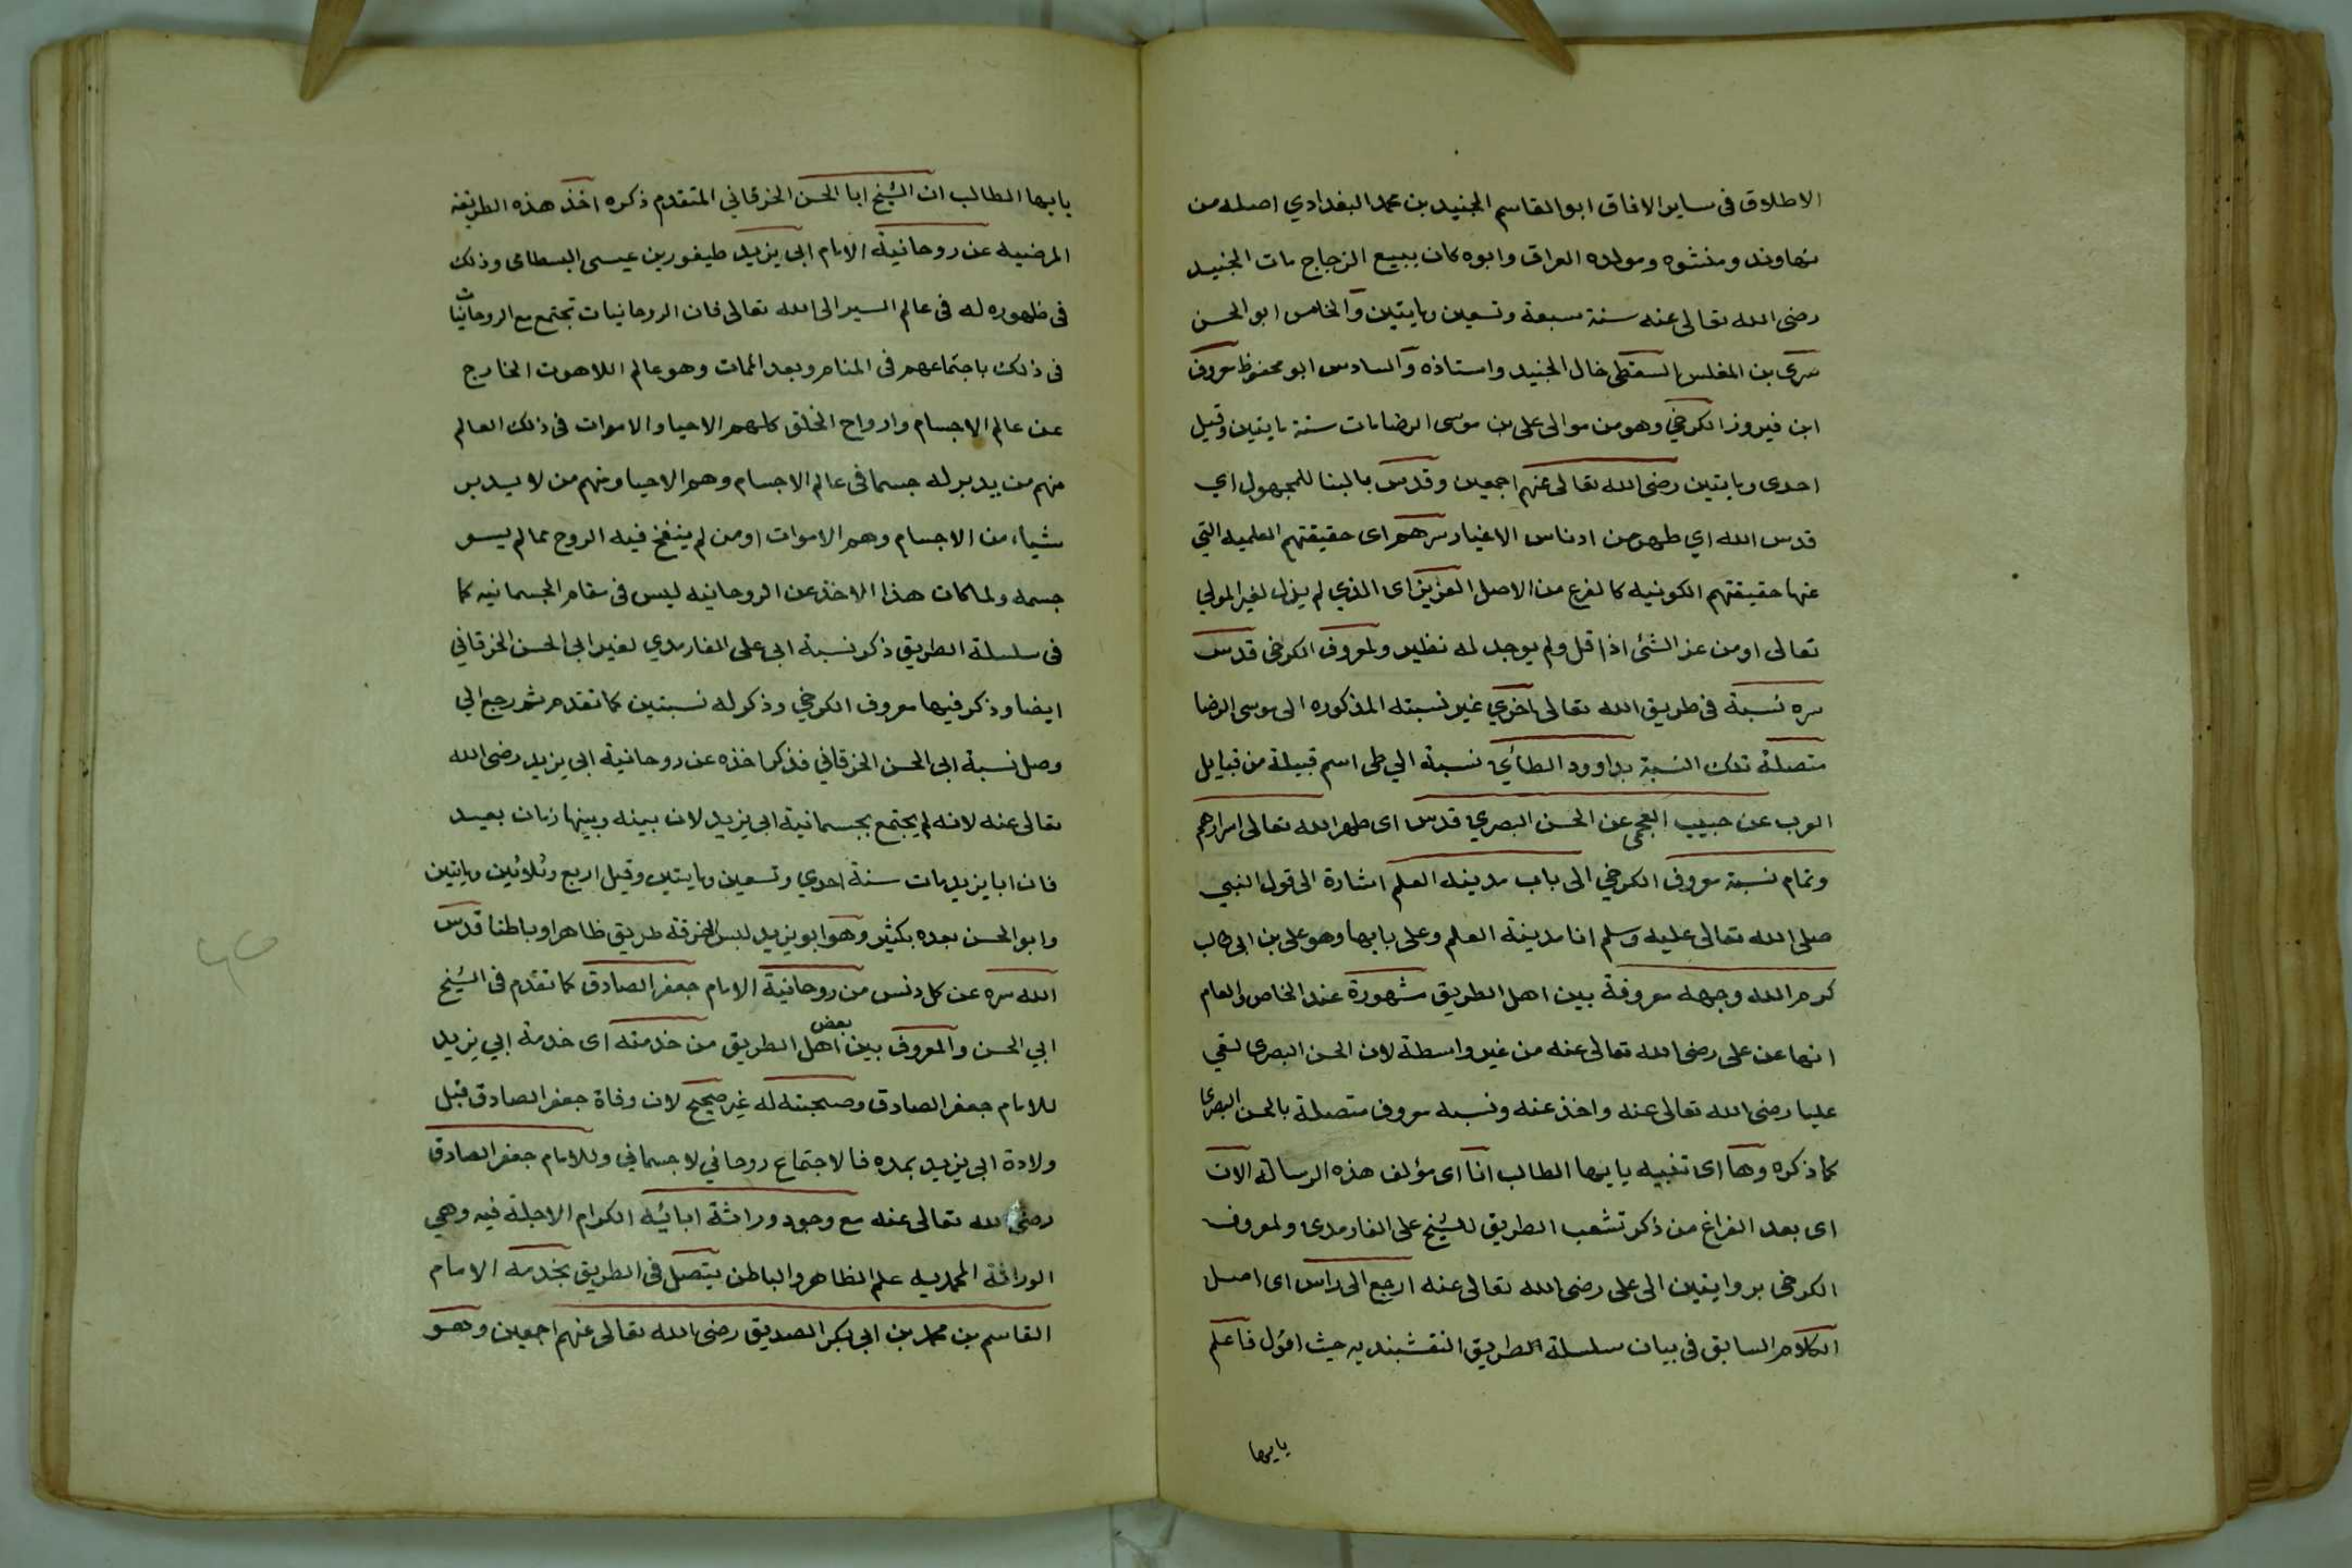 الاطلاق فى ساير الافاق ابو القاسم الجنيد بن محمد البغدادي اصله من
نهاوند ومنشوه ومولده العراق وابوه كان يبيع الزجاج مات الجنيد
رضى الله تعالى عنه سنة سبعة وتسعين ومايتين والخامس ابو الحسن
سرى بن المغلس السقطى خال الجنيد واستاذه والسادس ابو محفوظ معروف
ابن فيروز الكرخي وهو من موالى على بن موسى الرضا مات سنة مايتين وقيل
احدى ومايتين رضى الله تعالى عنهم اجمعين وقدس بالبنا للمجهول اي
قدس الله اي طهر من ادناس الاغيار سرهم اى حقيقتهم العلميه التي
عنها حقيقتهم الكونيه كالفرع من الاصل العزيز اى الذي لم يذل لغير المولي
تعالى او من عز الشئ اذا قل ولم يوجد له نظير ولمعروف الكرخى قدس
سره نسبة فى طريق الله تعالى اخري غير نسبته المذكوره الى موسى الرضا
متصلة تلك النسبة بداوود الطائي نسبة الي طى اسم قبيلة من قبايل
العرب عن حبيب العجمى عن الحسن البصري قدس اى طهر الله تعالى اسرارهم
وتمام نسبة معروف الكرخي الى باب مدينه العلم اشارة الى قول النبي
صلى الله تعالى عليه وسلم انا مدينة العلم وعلى بابها وهو على بن ابى طالب
كرم الله وجهه معروفة بين اهل الطريق مشهورة عند الخاص والعام
انها عن على رضى الله تعالى عنه من غير واسطة لان الحسن البصرى لقي
عليا رضى الله تعالى عنه واخذ عنه ونسبه معروف متصلة بالحسن البصرى
كما ذكره وها اى تنبيه يايها الطالب انا اى مؤلف هذه الرساله الان
اى بعد الفراغ من ذكر تشعب الطريق للشيخ على الفارمدى ولمعروف
الكرخى بروايتين الى على رضى الله تعالى عنه ارجع الى راس اى اصل
الكلام السابق فى بيان سلسلة الطريق النقشبنديه حيث اقول فاعلم
يايها
يايها الطالب ان الشيخ ابا الحسن الخرقاني المتقدم ذكره اخذ هذه الطريقه
المرضيه عن روحانية الامام ابى يزيد طيفور بن عيسى البسطامى وذلك
فى ظهوره له فى عالم السير الى الله تعالى فان الروحانيات تجتمع مع الروحانيات
فى ذلك باجتماعهم فى المنام وبعد الممات وهو عالم اللاهوت الخارج
عن عالم الاجسام وارواح الخلق كلهم الاحيا والاموات فى ذلك العالم
منهم من يدبر له جسما فى عالم الاجسام وهم الاحيا ومنهم من لا يدبر
شياء من الاجسام وهم الاموات او من لم ينفخ فيه الروح مما لم يسو
جسمه ولما كان هذا الاخذ عن الروحانيه ليس فى مقام الجسمانيه كما
فى سلسلة الطريق ذكر نسبة ابى على الفارمدي لغير ابى الحسن الخرقاني
ايضا وذكر فيها معروف الكرخي وذكر له نسبتين كما تقدم ثم رجع الي
وصل نسبة ابى الحسن الخرقاني فذكر اخذه عن روحانية ابى يزيد رضى الله
تعالى عنه لانه لم يجتمع بجسمانية ابى يزيد لان بينه وبينها زمان بعيد
فان ابا يزيد مات سنة احدي وتسعين ومايتين وقيل اربع وثلاثين ومايتين
وابو الحسن بعده بكثير وهو ابو يزيد لبس الخرقة طريق ظاهرا وباطنا قدس
الله سره عن كل دنس من روحانية الامام جعفر الصادق كما تقدم فى الشيخ
ابي الحسن والمعروف بين بعض اهل الطريق من خدمته اى خدمة ابي يزيد
للامام جعفر الصادق وصحبته له غير صحيح لان وفاة جعفر الصادق قبل
ولادة ابى يزيد بمده فالاجتماع روحاني لا جسماني وللامام جعفر الصادق
رضى الله تعالى عنه مع وجود وراثة ابائيه الكرام الاجلة فيه وهي
الوراثة المحمديه علم الظاهر والباطن يتصل فى الطريق بخدمة الامام
القاسم بن محمد بن ابى بكر الصديق رضى الله تعالى عنهم اجمعين وهو